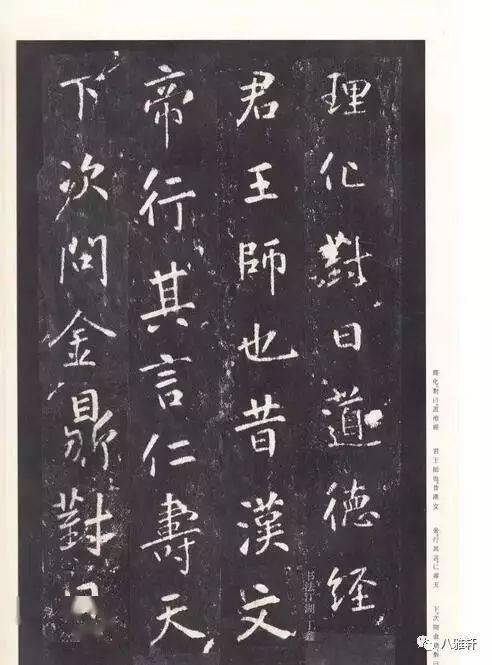 理化對曰道德經
君王師也昔漢文
帝行其言仁壽天
下次問金鼎對曰
理化對曰道德經 君王師也昔漢文 帝行其言仁壽天 下次問金鼎對曰
书法江湖丁鑫
八雅轩